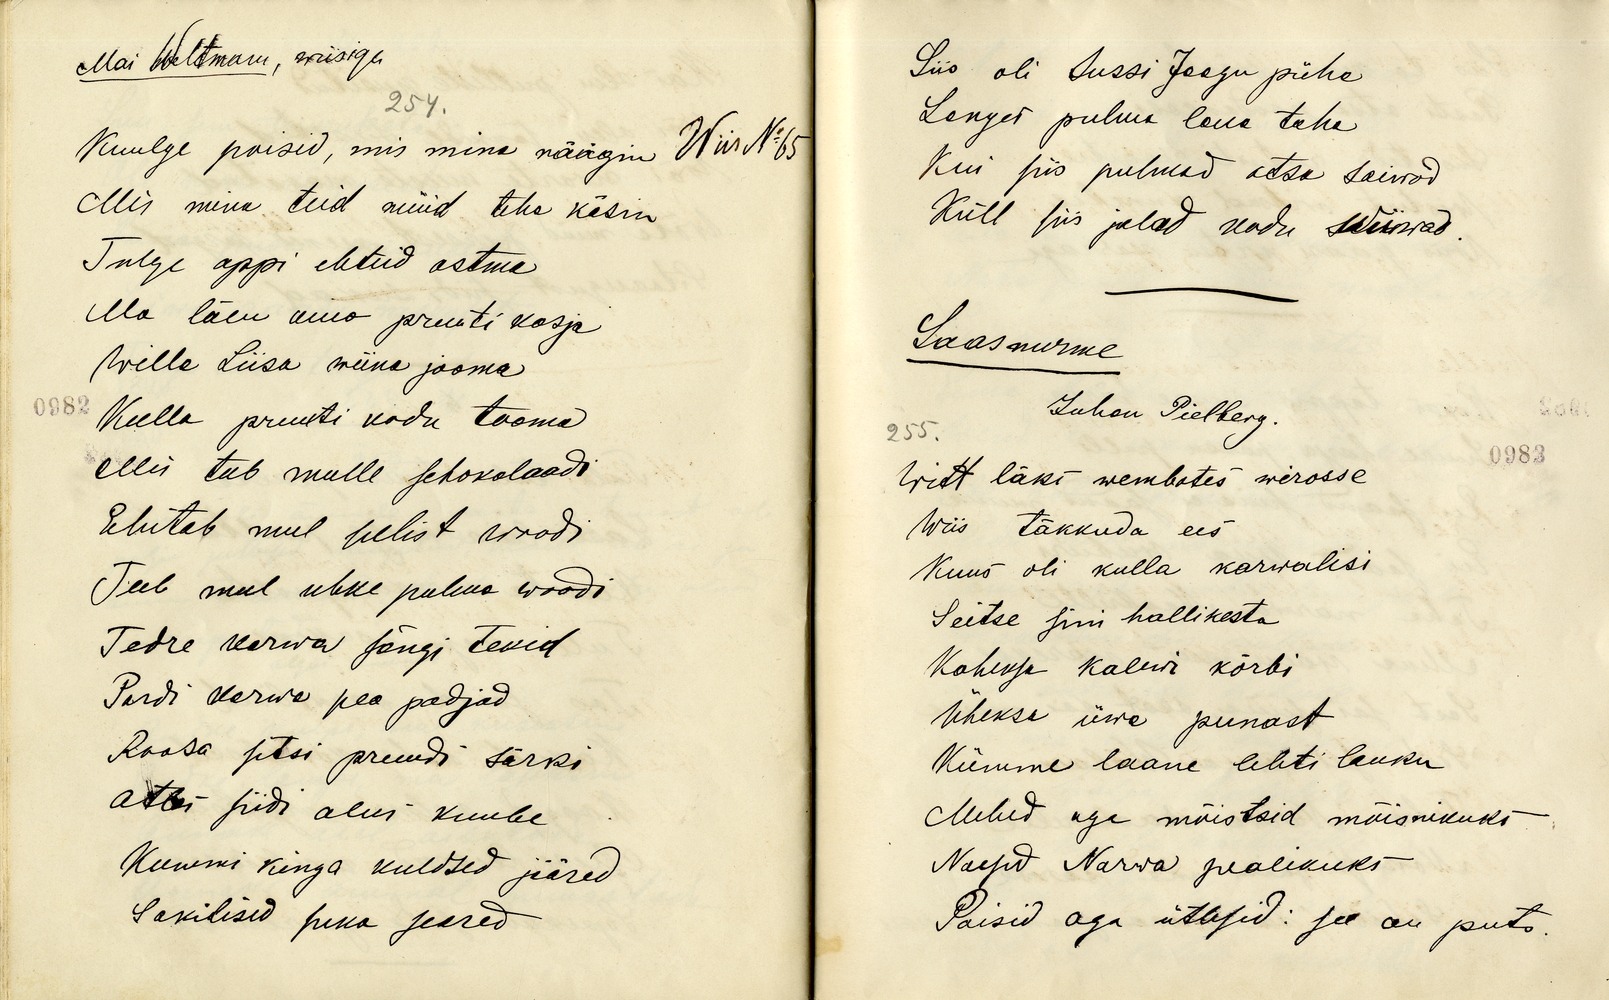 Mai Weltmann, wiisiga
254.
Kuulge poisid, mis mina räägin Wiis № 65
Mis mina teid nüüd teha käsin
Tulge appi ehteid ostma
Ma lään oma pruuti kosja
Willa Liisa wiina jooma
0982
Kulla pruuti kodu tooma
Mis tab mulle schokolaadi
Ehitab mul selist woodi
Teeb mul uhke pulma woodi
Tedre karwa sängi tekid
Pardi karwa pea padjad
Roosa sitsi pruudi särki
Atlas siidi alus kuube
Kummi kinga kuldsed jääred
Sakilised suka seared
Siis oli Sussi Jaagu püha
Langes pulma laua taha
Kui siis pulmad otsa saiwad
Küll siis jalad kodu wiiwad.
Saasnurme
Juhan Pielberg.
255.
0983
Witt läks wembates wirosse
Wiis täkkuda ees
Kuus oli kulla karwalisi
Seitse sini hallikesta
Kaheksa kalewi kõrbi
Üheksa üwa punast
Kümme laane lehti lauku
Mehed aga mõistsid mõisnikuks
Naised Narwa pealikuks
Poisid aga ütlesid: see on puts.